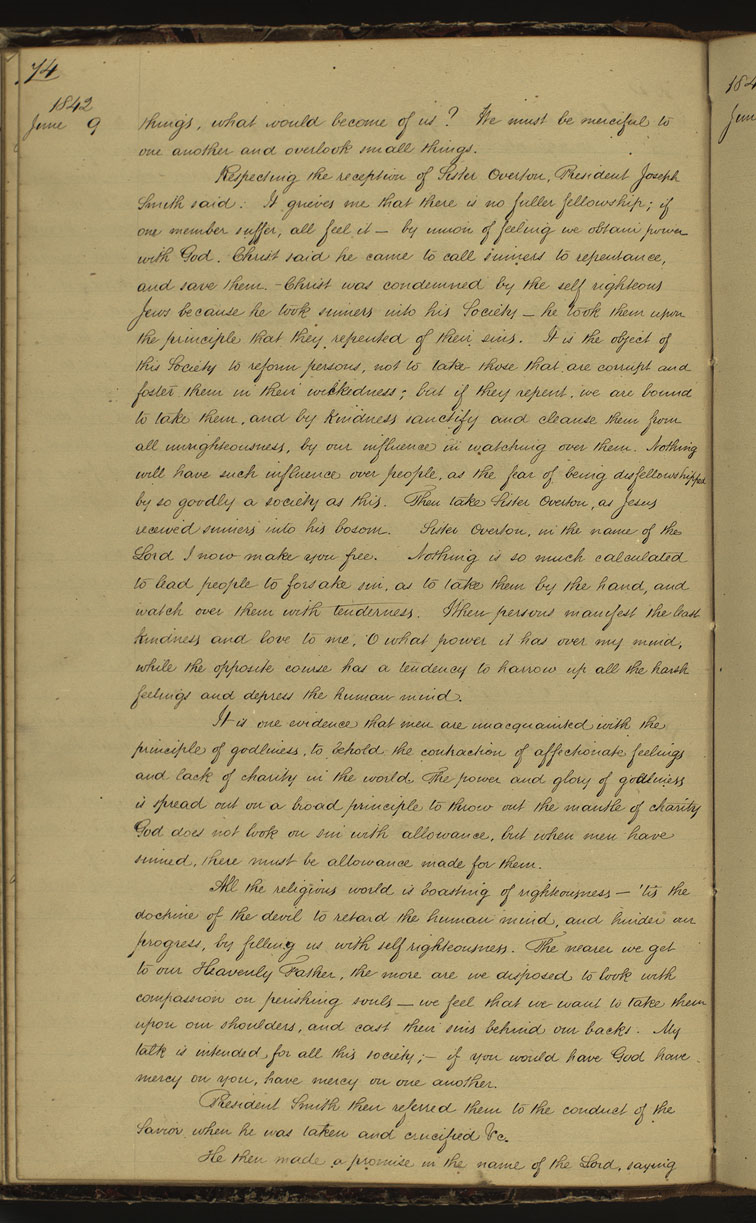 74
1842
June 9
184
Jun
things, what would become of us? We must be merciful to
one another and overlook small things.
Respecting the reception of Sister Overton, President Joseph
Smith said: It grieves me that there is no fuller fellowship; if
one member suffer, all feel it — by union of feeling we obtain power
with God. Christ said he came to call sinners to repentance,
and save them. - Christ was condemned by the self righteous
Jews because he took sinners into his Society — he took them upon
the principle that they repented of their sins. It is the object of
this Society to reform persons, not to take those that are corrupt and
foster them in their wickedness; but if they repent, we are bound
to take them, and by kindness sanctify and cleanse them from
all unrighteousness, by our influence in watching over them. Nothing
will have such influence over people, as the fear of being disfellowshipped
by so goodly a society as this. Then take Sister Overton, as Jesus
received sinners into his bosom. Sister Overton, in the name of the
Lord I now make you free. Nothing is so much calculated
to lead people to forsake sin, as to take them by the hand, and
watch over them with tenderness. When persons manifest the least
kindness and love to me, O what power it has over my mind,
while the opposite course has a tendency to harrow up all the harsh
feelings and depress the human mind.
It is one evidence that men are unacquainted with the
principle of godliness, to behold the contraction of affectionate feelings
and lack of charity in the world. The power and glory of godliness
is spread out on a broad principle to throw out the mantle of charity
God does not look on sin with allowance, but when men have
sinned, there must be allowance made for them.
All the religious world is boasting of righteousness — 'tis the
doctrine of the devil to retard the human mind, and hinder our
progress, by filling us with self righteousness. The nearer we get
to our Heavenly Father, the more are we disposed to look with
compassion on perishing souls — we feel that we want to take them
upon our shoulders, and cast their sins behind our backs. My
talk is intended for all this society; — if you would have God have
mercy on you, have mercy on one another.
President Smith then referred them to the conduct of the
Savior when he was taken and crucified &c.
He then made a promise in the name of the Lord, saying